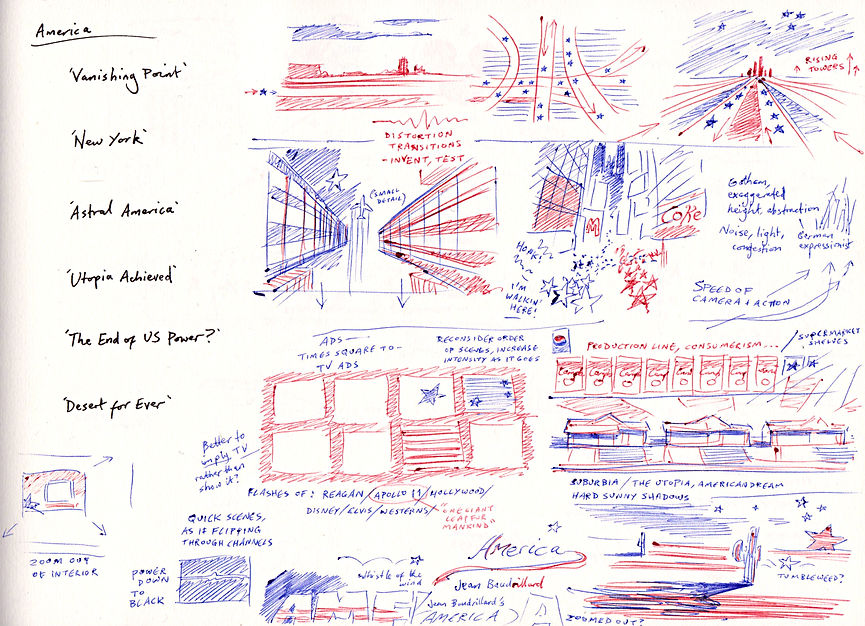 America
'Vanishing Point'
'New York'
'Astral America'
'Utopia Achieved'
'The End of US Power?'
'Desert for Ever'
RISING
TOWERS
DISTORTION
TRANSITIONS
- INVENT, TEST
(SMALL
DETAIL)
M
Coke
HONK!
I'M
WALKIN'
HERE!
Gotham,
exaggerated
height, abstraction
Noise, light,
congestion
German
expressionism
SPEED OF
CAMERA + ACTION
ADS—
TIMES SQUARE TO—
TV ADS
RECONSIDER ORDER
OF SCENES, INCREASE
INTENSITY AS IT GOES
PRODUCTION LINE, CONSUMERISM...
SUPERMARKET
SHELVES
Better to
imply TV
rather than
show it?
FLASHES OF: REAGAN/APOLLO 11/HOLLYWOOD/
DISNEY/ELVIS/WESTERNS/
"ONE GIANT
LEAP FOR
MANKIND"
SUBURBIA / THE UTOPIA, AMERICAN DREAM
HARD SUNNY SHADOWS
QUICK SCENES,
AS IF FLIPPING
THROUGH CHANNELS
ZOOM OUT
OF INTERIOR
POWER
DOWN
TO
BLACK
Whistle of the
wind
America
Jean Baudrillard
Jean Baudrillard's
AMERICA
TUMBLEWEED?
ZOOMED OUT?